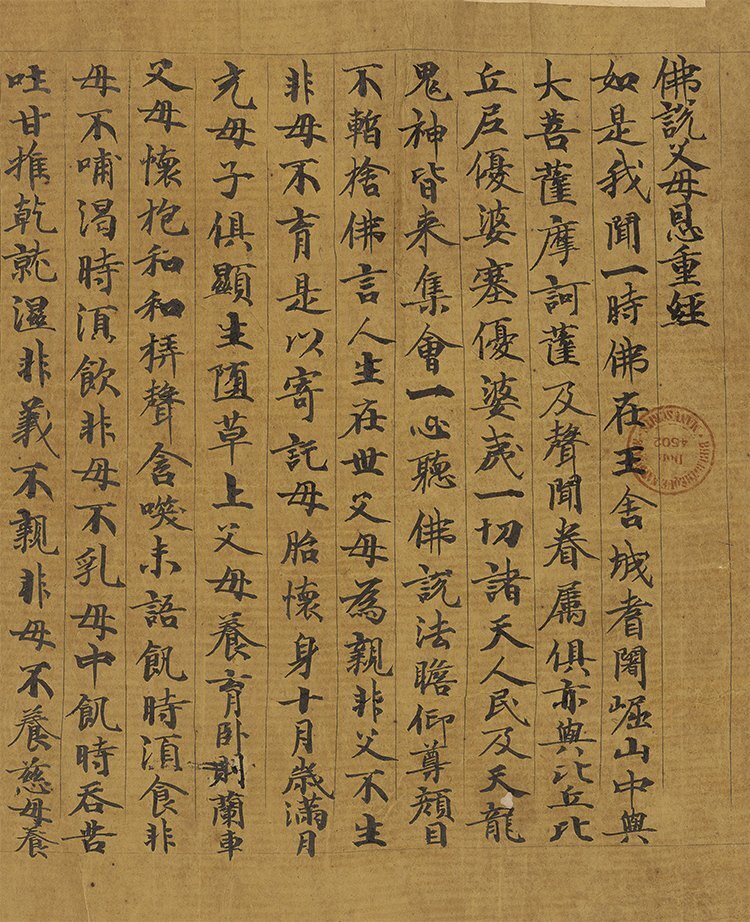 佛說父母恩重經
如是我聞一時佛在王舍城耆闍崛山中與
大菩薩摩訶薩及聲聞眷属俱亦與比丘比
丘尼優婆塞優婆夷一切諸天人民及天龍
鬼神皆来集會一心聽佛說法瞻仰尊顏目
不暫捨佛言人生在世父母為親非父不生
非母不育是以寄託母胎懷身十月歲滿月
充母子俱顯生墮草上父母養育卧則蘭車
父母懷抱和和弄聲含唉未語飢時湏食非
母不哺渴時湏飲非母不乳母中飢時吞苦
吐甘推乾就濕非義不親非母不養慈母養